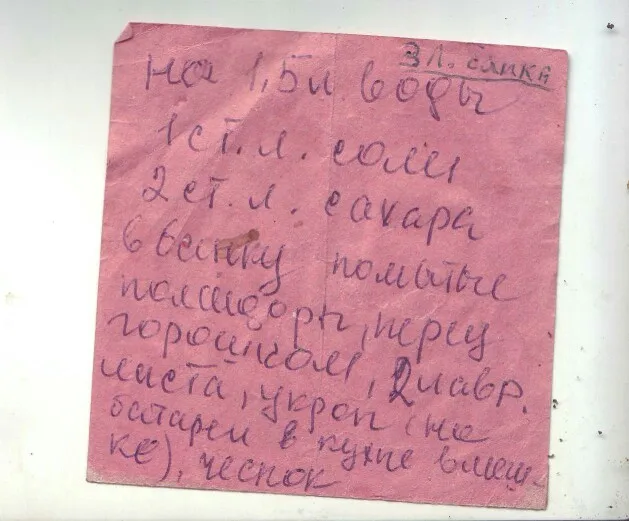 3 л. банка
на 1,5 л воды
1 ст. л. соли
2 ст. л. сахара
в банку помытые
помидоры, перец
горошком, 2 лавр.
листа, укроп (на
батареи в кухне в меш-
ке), чеснок